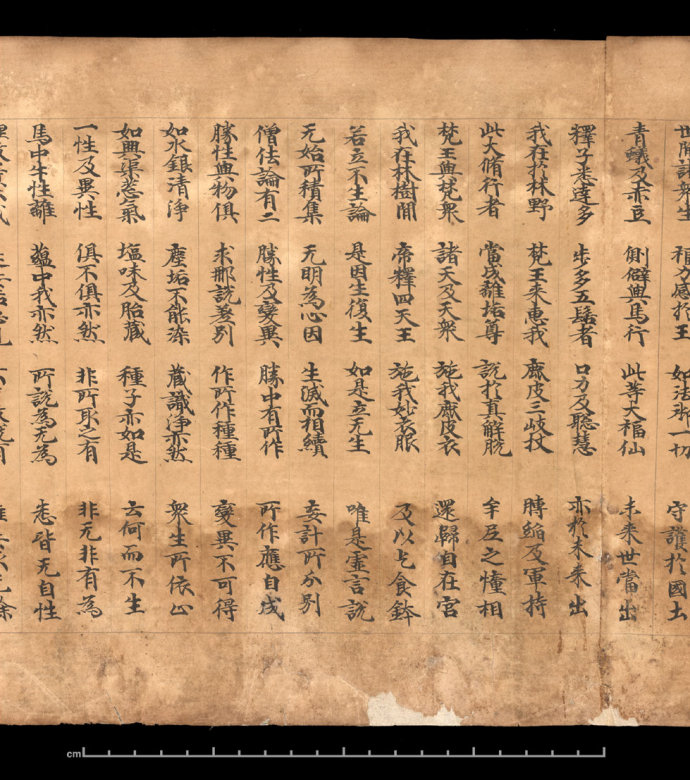 世間諸眾生 福力感於王 如法御一切 守護於國土
青蟻及赤豆 側僻與馬行 此等大福仙 未來世當出
釋子悉達多 步多五髻者 口力及聰慧 亦於未來出
我在於林野 梵王來惠我 鹿皮三岐杖 膊縚及軍持
此大脩行者 當成離垢尊 說於真解脫 牟尼之幢相
梵王與梵眾 諸天及天眾 施我鹿皮衣 還歸自在宮
我在林樹間 帝釋四天王 施我妙衣服 及以乞食鉢
若立不生論 是因生復生 如是立无生 唯是虛言說
无始所積集 无明為心因 生滅而相續 妄計所分別
僧佉論有二 勝性及變異 勝中有所作 所作應自成
勝性與物俱 求那說差別 作所作種種 變異不可得
如水銀清淨 塵垢不能染 藏識淨亦然 眾生所依止
如興渠葱氣 塩味及胎藏 種子亦如是 云何而不生
一性及異性 俱不俱亦然 非所取之有 非无非有為
馬中牛性離 蘊中我亦然 所說為无為 悉皆无自性
cm